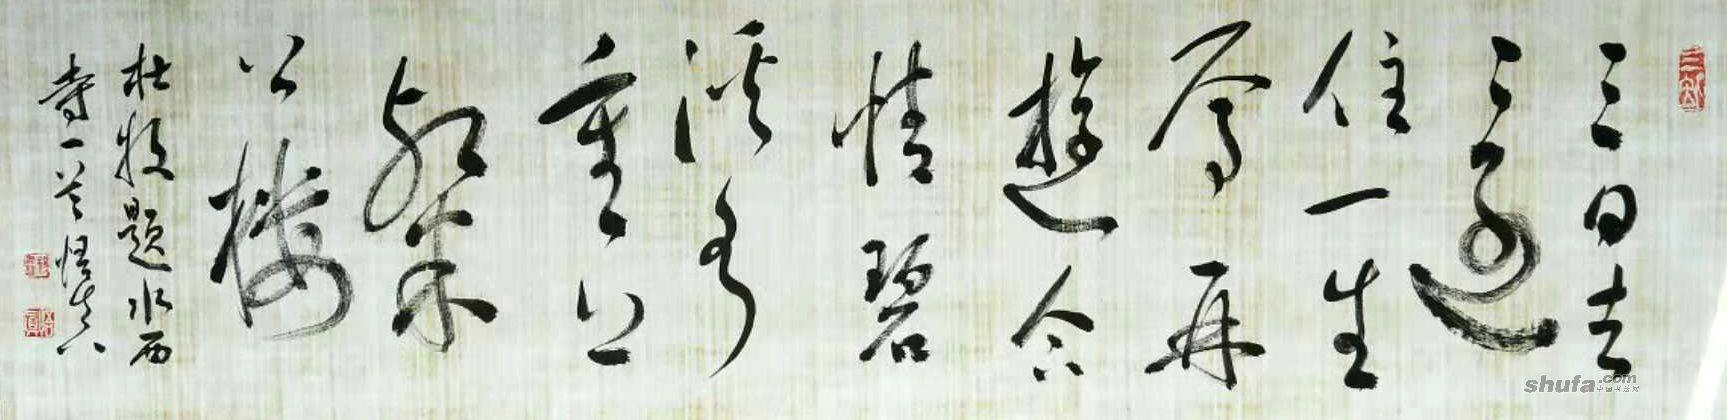 三日去
還
住一生
焉再
遊含
情碧
溪水
重上
粲
公樓
杜牧題水西
寺一首
shufa.com